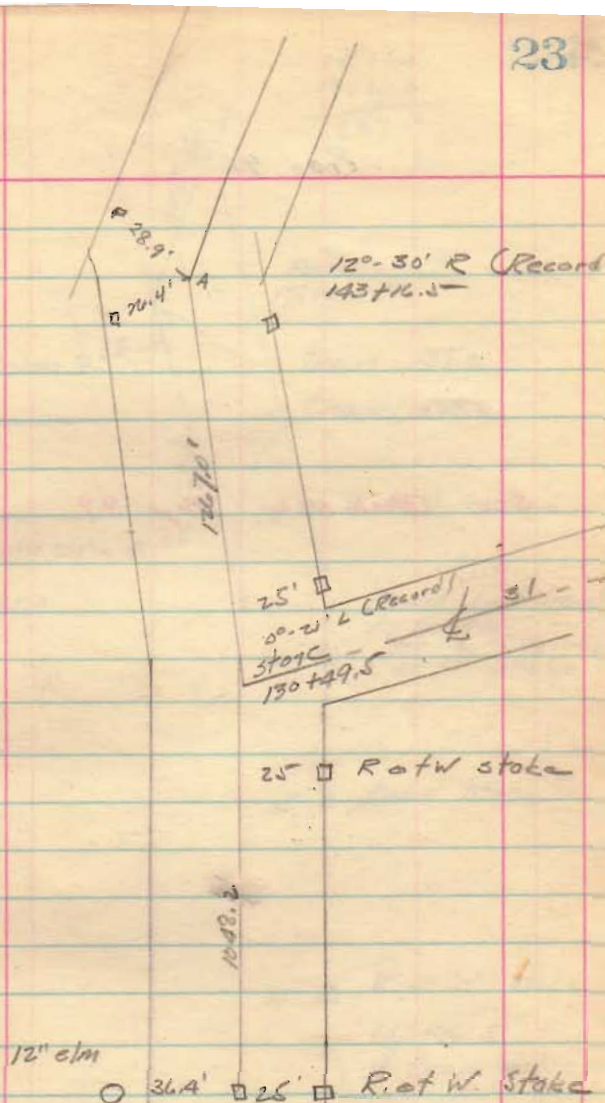 23
28.9'
A
26.4'
12°-30' R (Record
143+16.5
1267.0'
25'
0°-21' L (Record)
stone
130+49.5
31
25 R of W stake
1048.2
12" elm
36.4' 25' R. of W. Stake